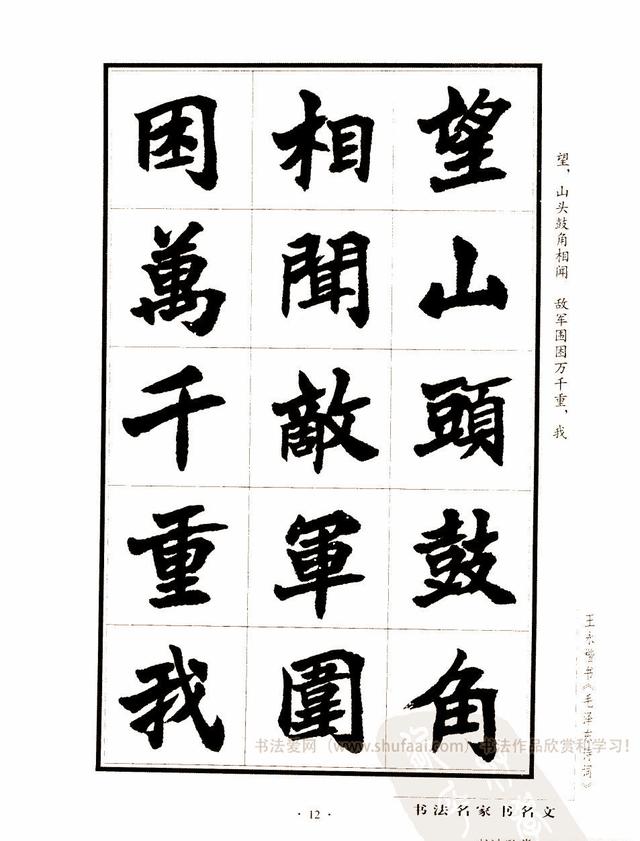 望山頭鼓角
相聞敵軍圍
困萬千重我
望，山头鼓角相闻　敌军围困万千重，我
王永楷书《毛泽东诗词》
书法爱网（www.shufaai.com）书法作品欣赏和学习！
· 12 ·
书法名家书名文